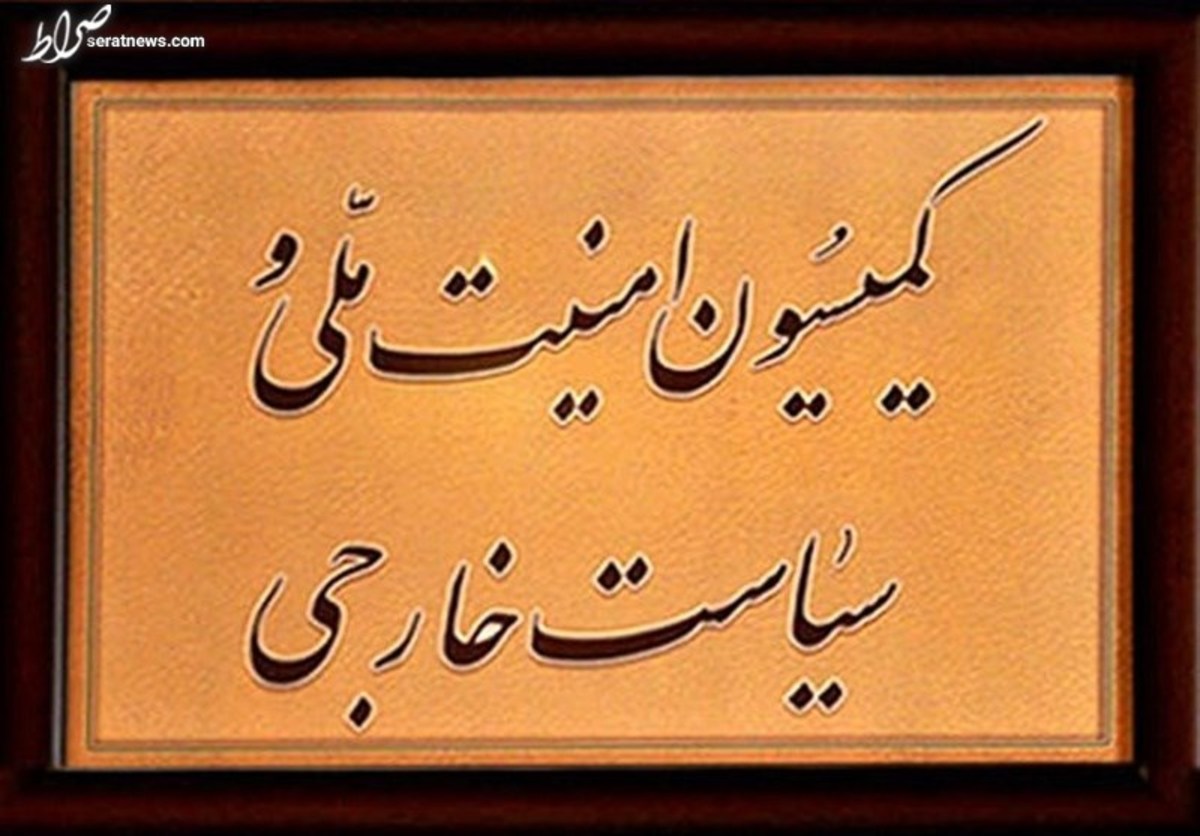 صراط
seratnews.com
کمیسیون امنیت ملّی و
سیاست خارجی